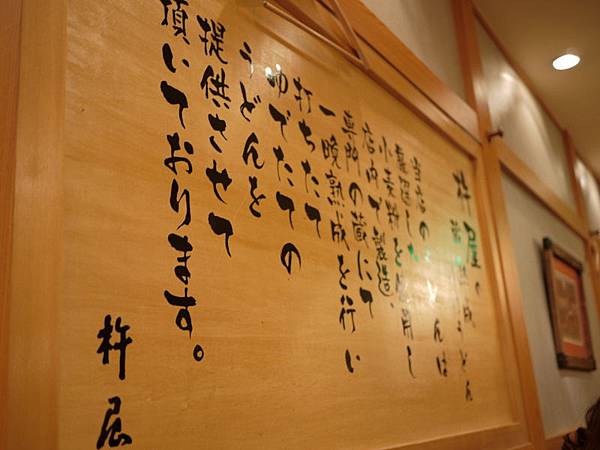 杵屋の熟成うどん
当店のうどんは
厳選した
小麦粉を使用し
店内で製造、
専門の蔵にて
一晩熟成を行い
打ちたて
ゆでたての
うどんを
提供させて
頂いております。
杵屋